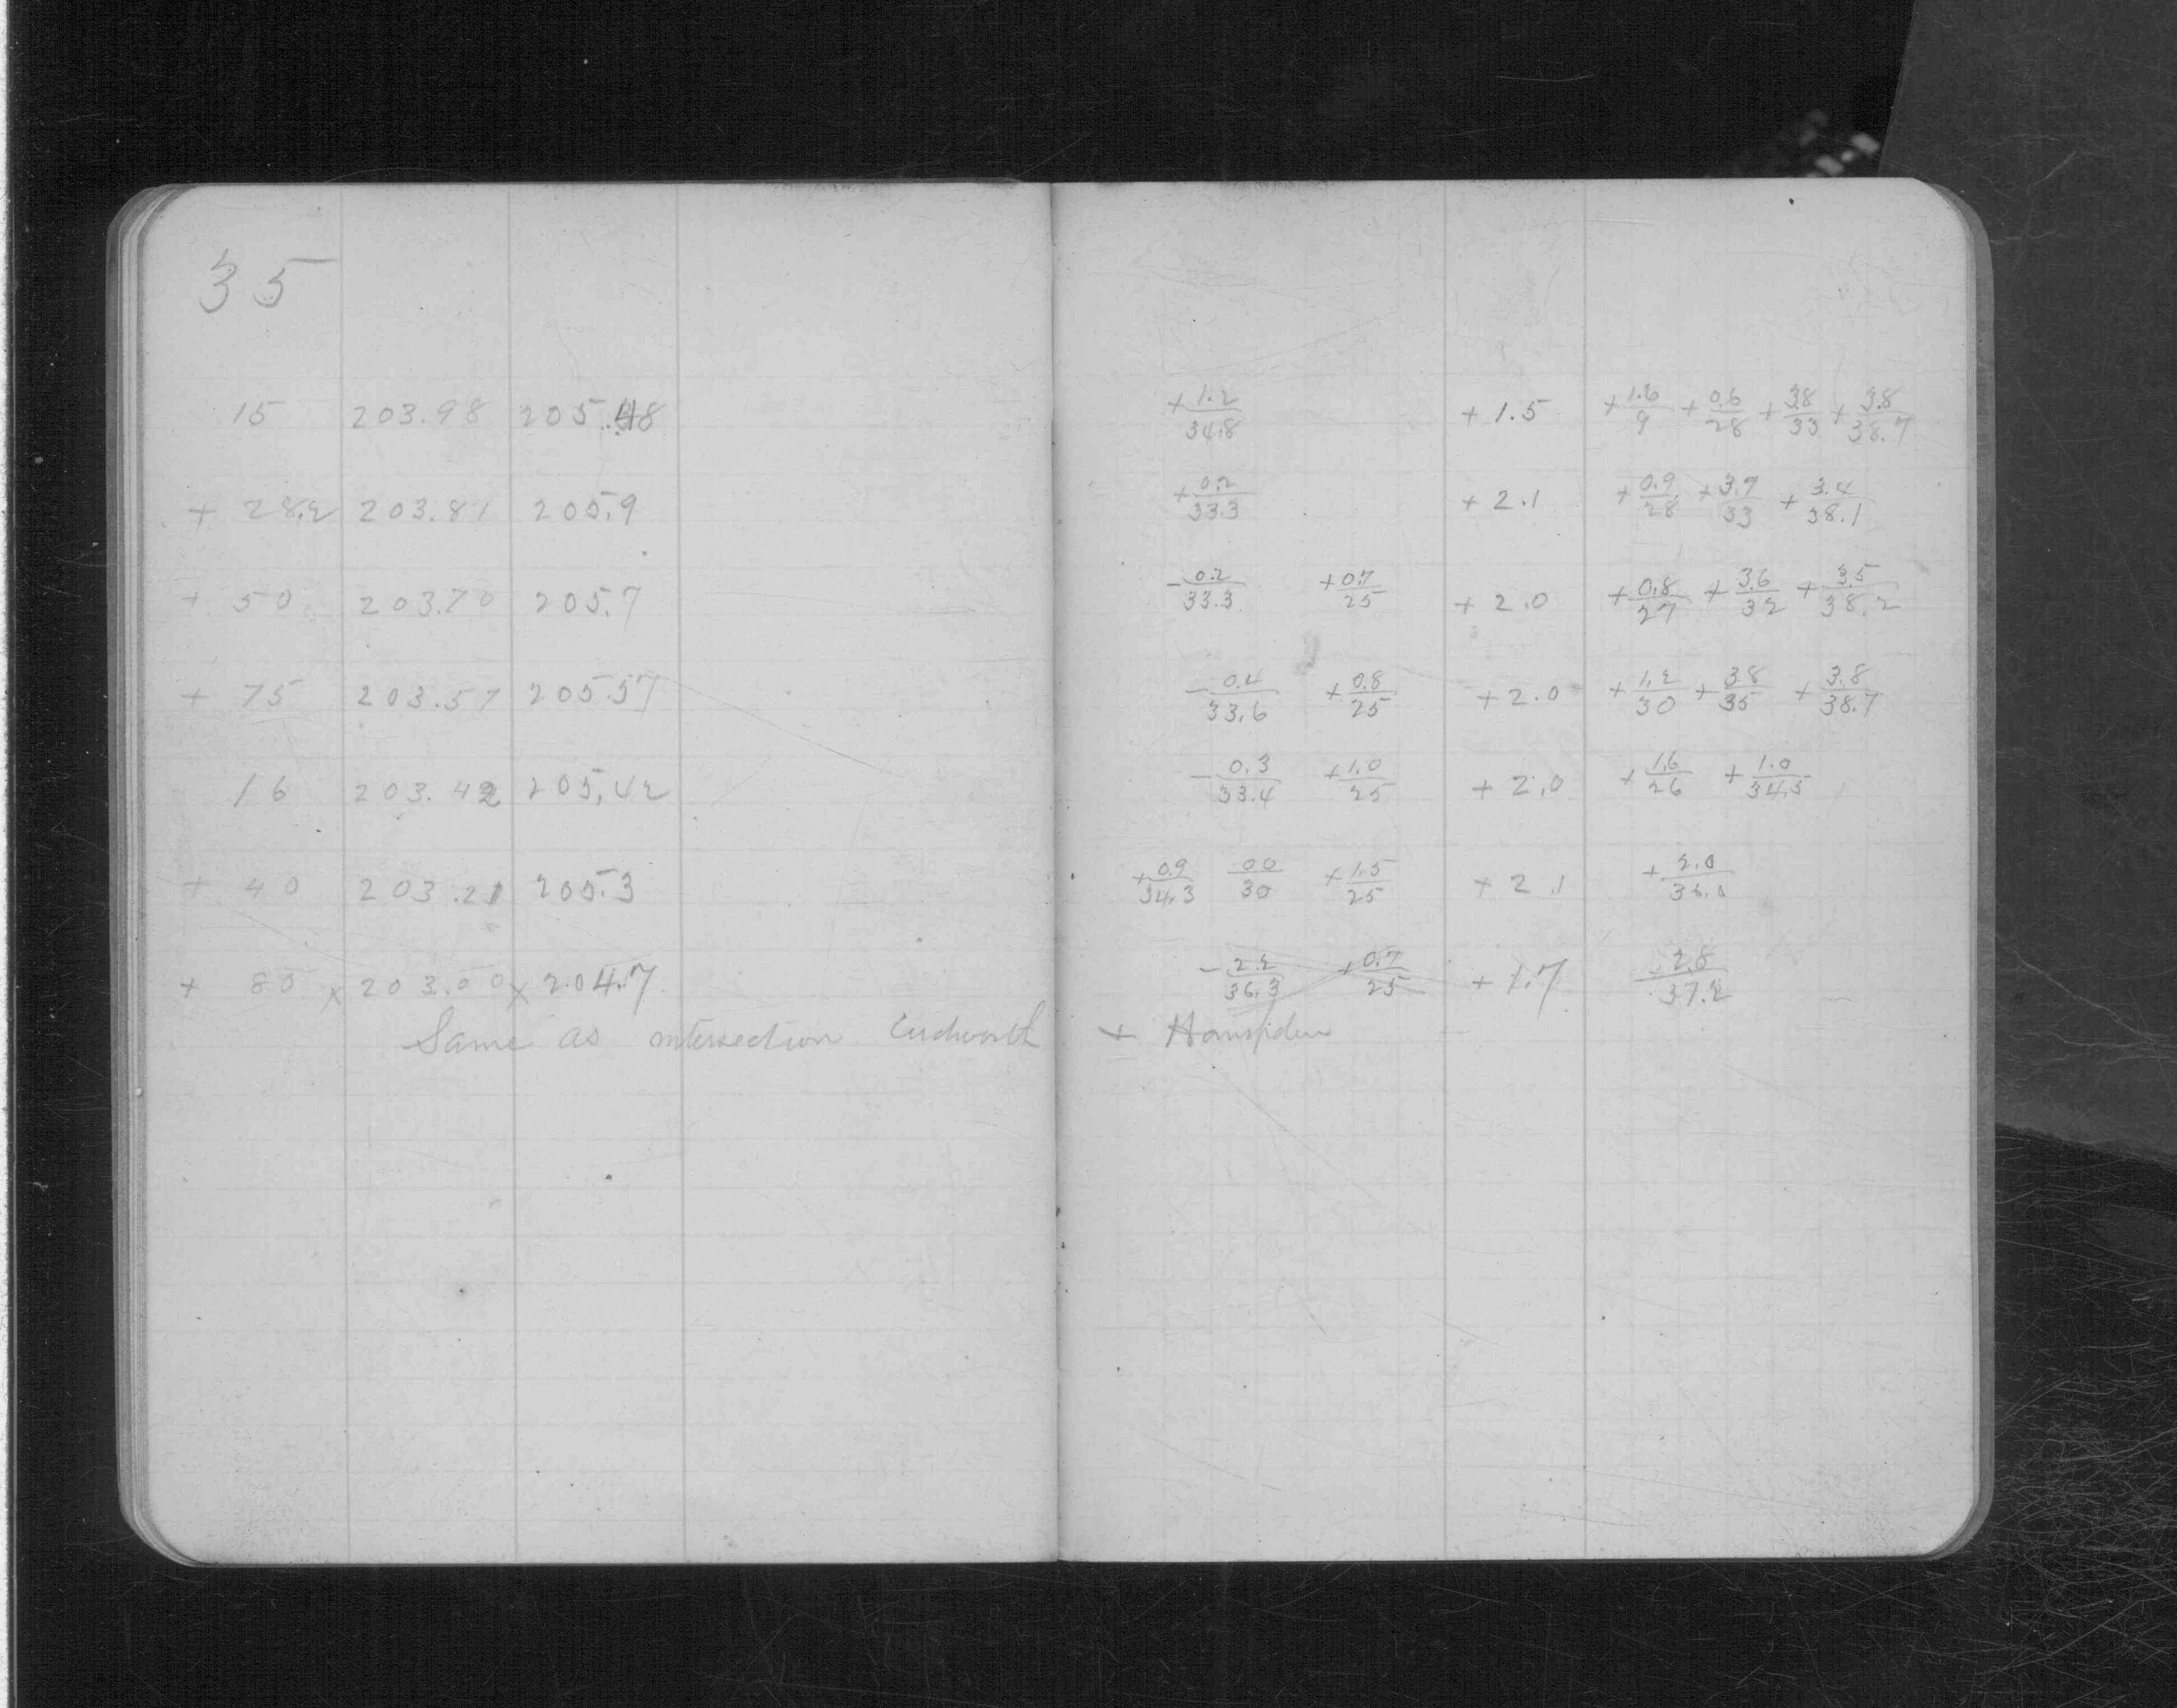 35
15 203.98 205.48 +1.2/34.8 +1.5 +1.6/9 +0.6/28 +3.8/33 +3.8/38.7
+ 28.2 203.81 205.9 +0.2/33.3 +2.1 +0.9/28 +3.7/33 +3.4/38.1
+ 50 203.70 205.7 -0.2/33.3 +0.7/25 +2.0 +0.8/27 +3.6/32 +3.5/38.2
+ 75 203.57 205.57 -0.4/33.6 +0.8/25 +2.0 +1.2/30 +3.8/35 +3.8/38.7
16 203.42 205.42 -0.3/33.4 +1.0/25 +2.0 +1.6/26 +1.0/34.5
+ 40 203.21 205.3 +0.9/34.3 00/30 +1.5/25 +2.1 +2.0/36.0
+ 80 x 203.00 x 204.7 -2.2/36.3 +0.7/25 +1.7 +2.8/37.2
Same as intersection Cudworth + Hampden